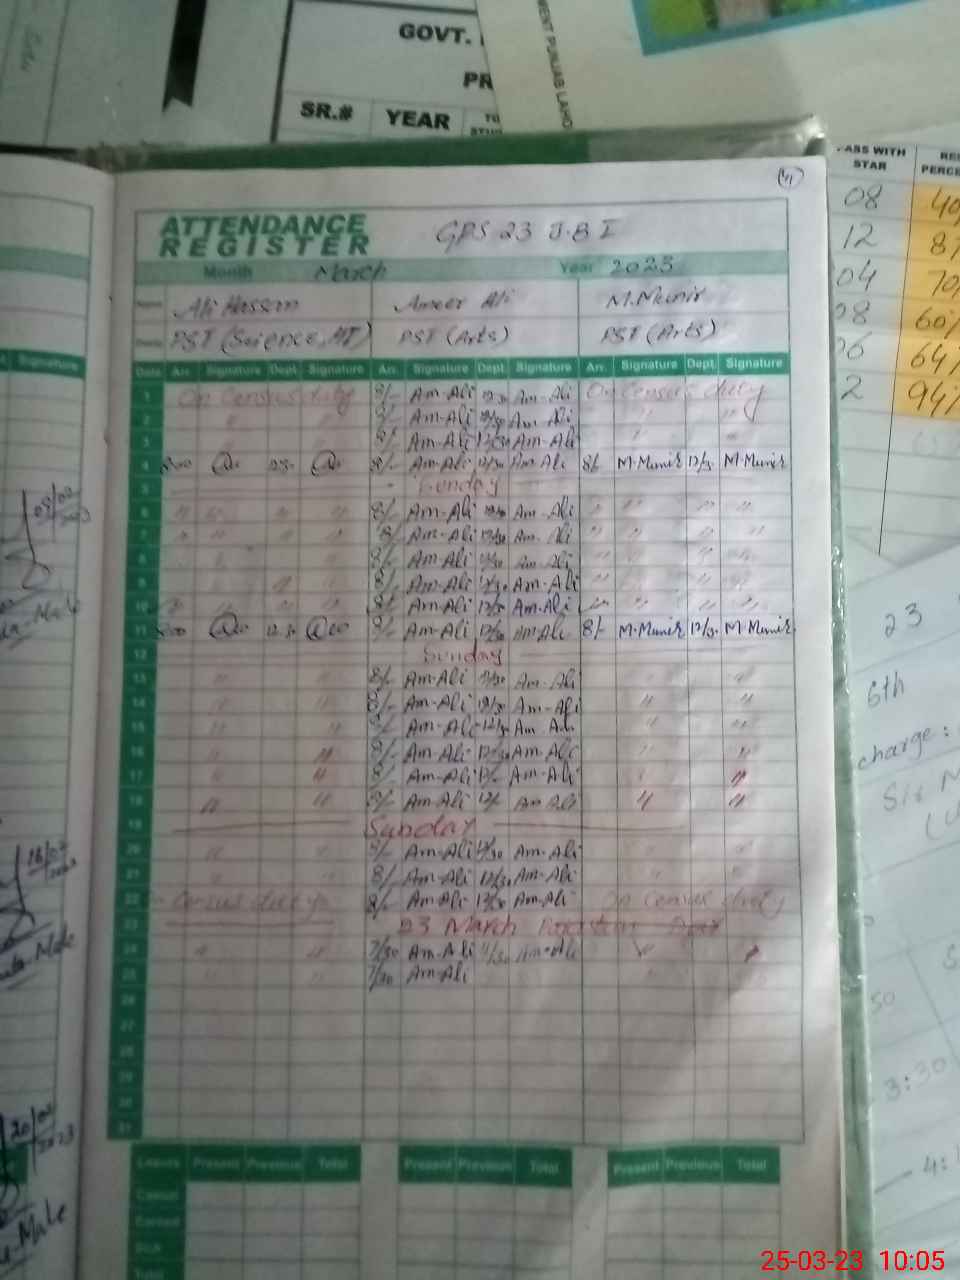 GOVT.
PR
SR.# YEAR TO
STU
MENT PUNJAB LAHO
PASS WITH STAR
RE
PERCE
08 40
12 87
04 70
08 60%
06 64%
2 94%
ATTENDANCE REGISTER
GPS 23 J.B I
Month March Year 2023
Ali Hassan Ameer Ali M.Munir
PST (Science, PST (Arts) PST (Arts)
Date Arr. Signature Dept. Signature Arr. Signature Dept. Signature Arr. Signature Dept. Signature
1 On Census duty 8/- Am-Ali 12/30 Am-Ali On Census duty
2 " " 8/- Am-Ali 12/30 Am-Ali " "
3 " " 8/- Am-Ali 12/30 Am-Ali " "
4 8/- Am-Ali 12/30 Am-Ali 8/- M.Munir 12/3. M.Munir
5 Sunday
6 " " " " 8/- Am-Ali 12/30 Am-Ali " " " "
7 " " " " 8/- Am-Ali 12/30 Am-Ali " " " "
8 " " 8/- Am-Ali 12/30 Am-Ali " " " "
9 " " 8/- Am-Ali 12/30 Am-Ali " " " "
10 " " " 8/- Am-Ali 12/30 Am-Ali " " "
11 12.30 8/- Am-Ali 12/30 Am-Ali 8/- M.Munir 12/3. M.Munir
12 Sunday
13 " " 8/- Am-Ali 12/30 Am-Ali " "
14 " " 8/- Am-Ali 12/30 Am-Ali " "
15 " " 8/- Am-Ali 12/30 Am-Ali " "
16 " " 8/- Am-Ali 12/30 Am-Ali " "
17 " " 8/- Am-Ali 12/- Am-Ali " "
18 " " 8/- Am-Ali 12/- Am-Ali " "
19 Sunday
20 " " 8/- Am-Ali 12/30 Am-Ali " "
21 " " 8/- Am-Ali 12/30 Am-Ali " "
22 On Census duty 8/- Am-Ali 12/30 Am-Ali On Census duty
23 23 March Pakistan Day
24 " " 7/30 Am-Ali 11/30 Am-Ali " "
25 " " 7/30 Am-Ali "
26
27
28
29
30
31
Leaves Present Previous Total Present Previous Total Present Previous Total
Casual
Earned
Sick
Total
Signature
23
6th
charge:
3:30
4:1
25-03-23 10:05